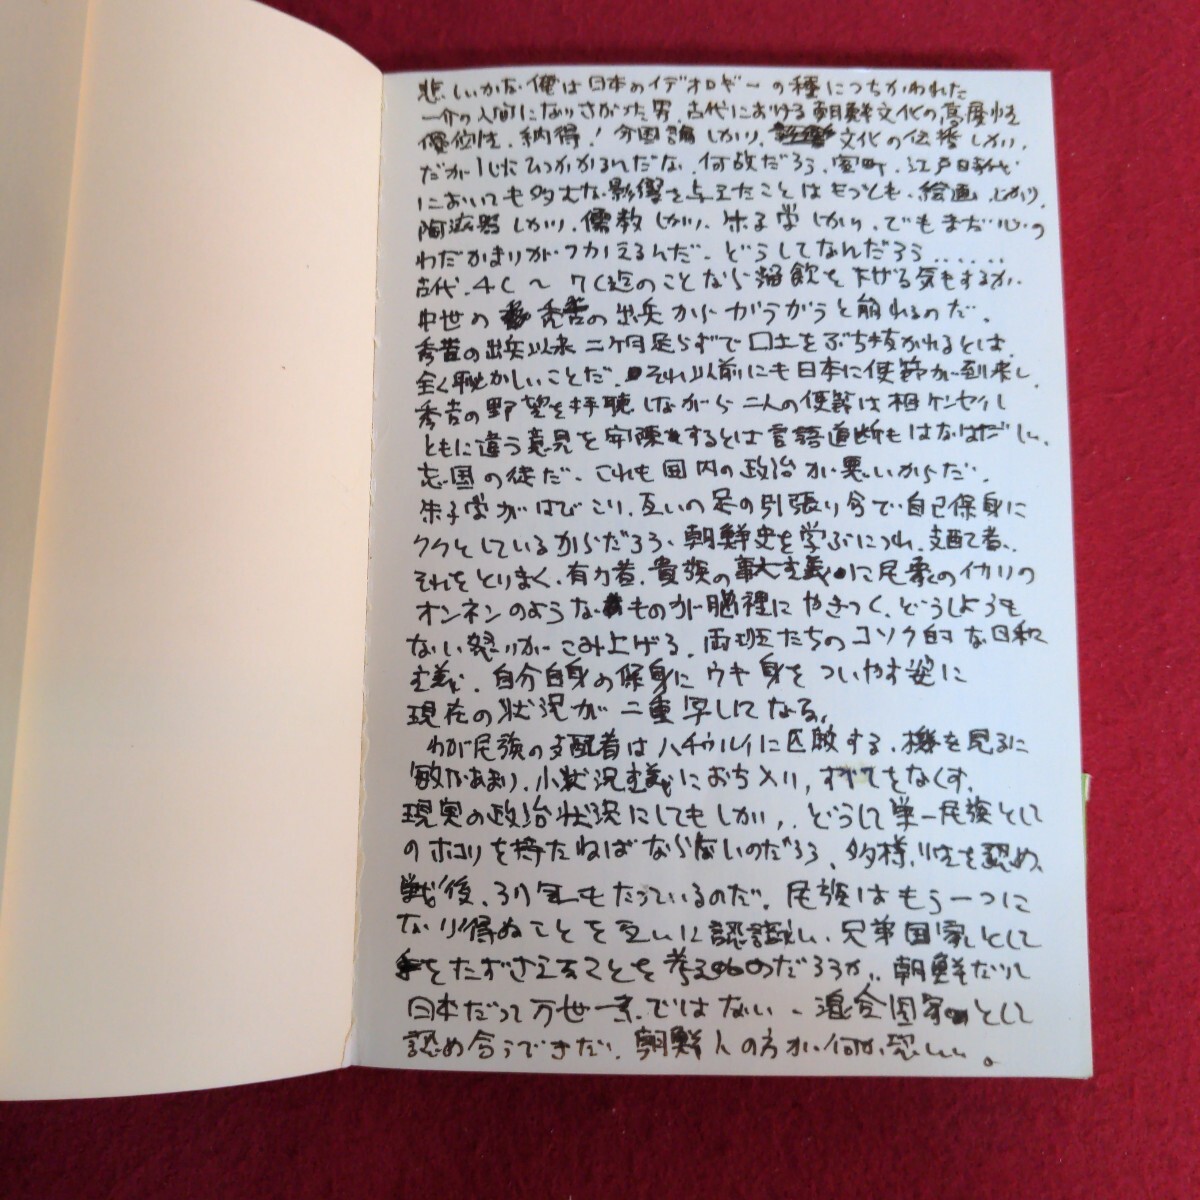 悲しいかな俺は日本のイデオロギーの種につちかわれた
一介の人間になりさがった男、古代における朝鮮文化の高度性
優位性、納得！分国論しかり、文化の伝播しかり、
だが1点ひっかかるんだな、何故だろう、室町、江戸時代
においても多大な影響を与えたことはもっとも、絵画しかり、
陶磁器しかり、儒教しかり、朱子学しかり、でもまだ心の
わだかまりがつかえるんだ、どうしてなんだろう......
古代、4C〜7C迄のことなら溜飲を下げる気もするが、
中世の秀吉の出兵からがらがらと崩れるのだ、
秀吉の出兵以来二ケ月足らずで口土をぶち抜かれるとは、
全く恥かしいことだ、それ以前にも日本に使節が到来し、
秀吉の野望を拝聴しながら二人の使節は相ケンセイし
ともに違う意見を するとは言語道断もはなはだしい、
亡国の徒だ、これも国内の政治が悪いからだ、
朱子学がはびこり、互いの足の引張り合で自己保身に
クタクタとしているからだろう、朝鮮史を学ぶにつれ、支配者、
それをとりまく、有力者、貴族の事大主義に民衆のイカリの
オンネンのようなものが脳裡にやきつく、どうしようも
ない怒りがこみ上げる、両班たちのコソク的な日和
主義、自分自身の保身にウキ身をついやす姿に
現在の状況が二重写しになる、
わが民族の支配者はハチュウルイに匹敵する、機を見るに
敏があまり、小状況主義におち入り、すべてをなくす、
現実の政治状況にしてもしかり、どうして単一民族として
のホコリを持たねばならないのだろう、多様性を認め、
戦後、37年もたっているのだ、民族はもう一つに
なり得ぬことを互いに認識し、兄弟国家として
手をたずさえることを考えぬのだろうか、朝鮮だって
日本だって万世一系ではない、混合国家として
認め合うべきだ、朝鮮人の方が何か恐しい。